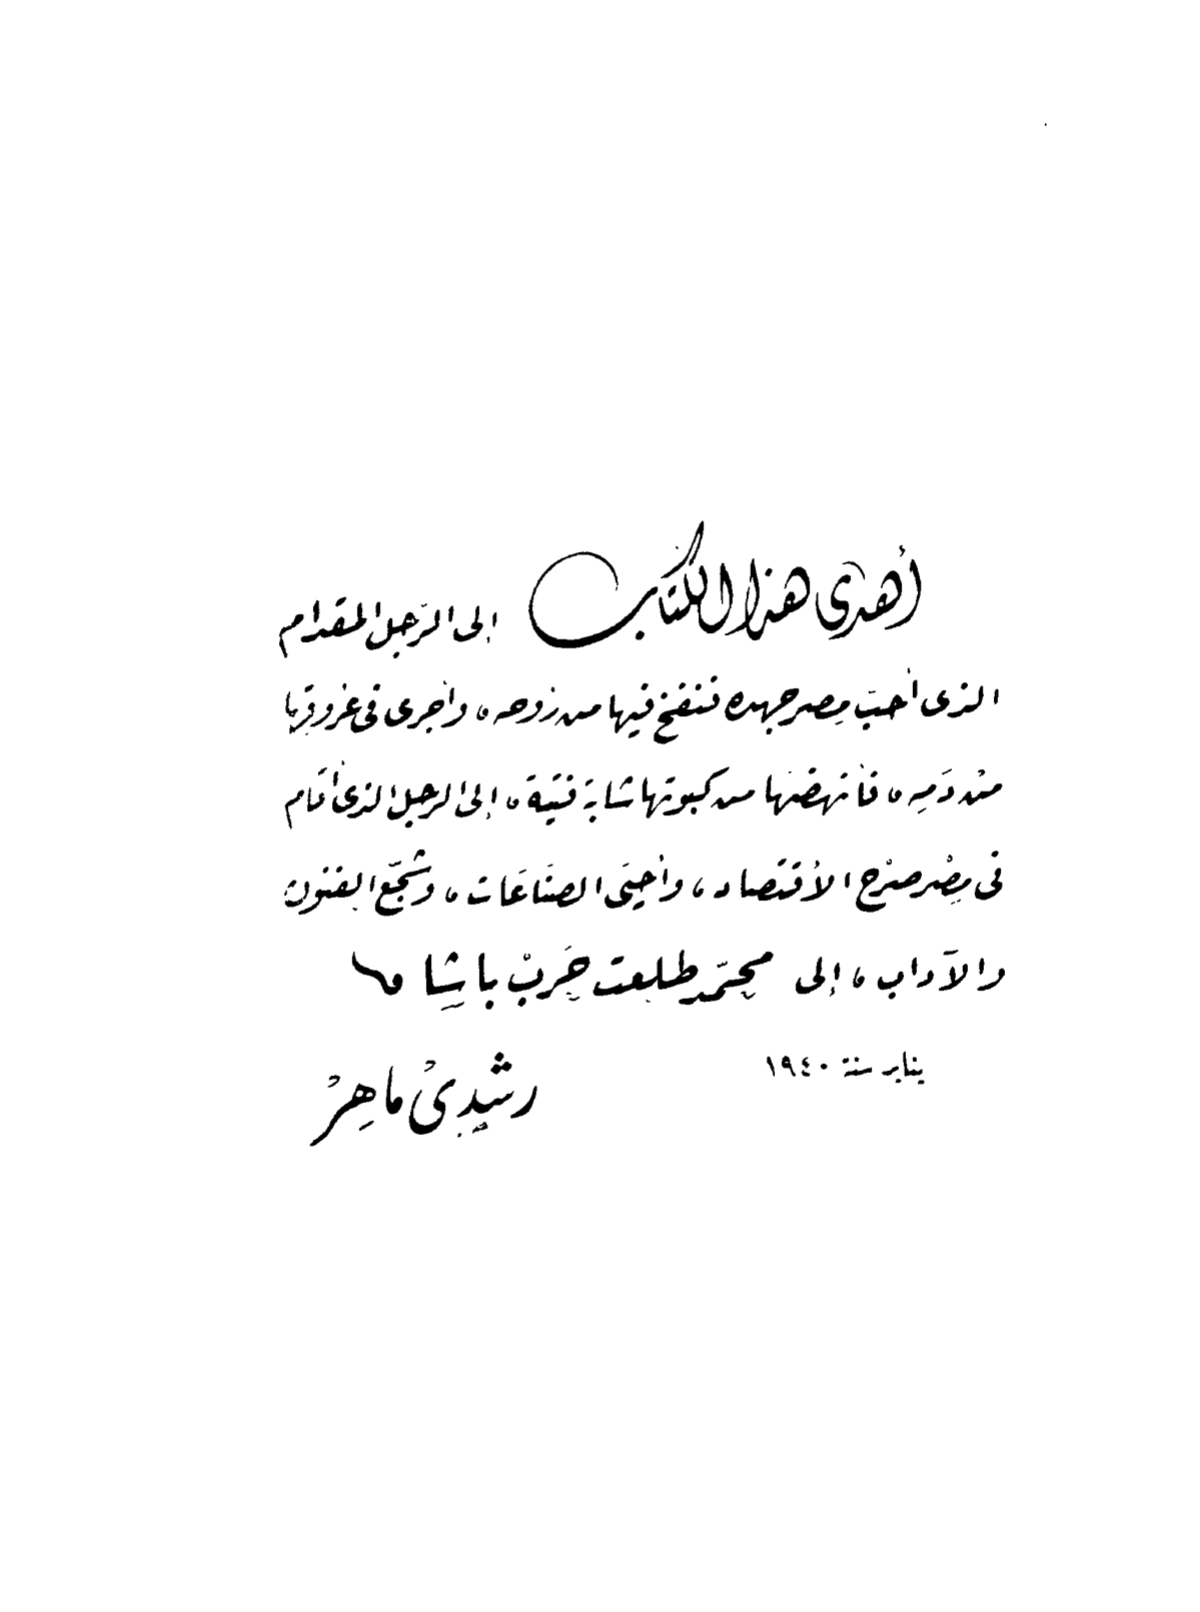 أهدى هذا الكتاب إلى الرّجل المقدام
الذى أحبّ مصر جهده فنفخ فيها من روحه ، وأجرى فى عروقها
من دَمِه ، فأنهضها من كبوتها شابة فتيّة ، إلى الرجل الذى أقام
فى مِصْر صرْح الأقتصاد ، وأحيَى الصنَاعَات ، وشجّع الفنون
والآداب ، إلى محمّد طلعت حَربْ باشا
يناير سنة ١٩٤٠
رشدِىْ ماهِرْ